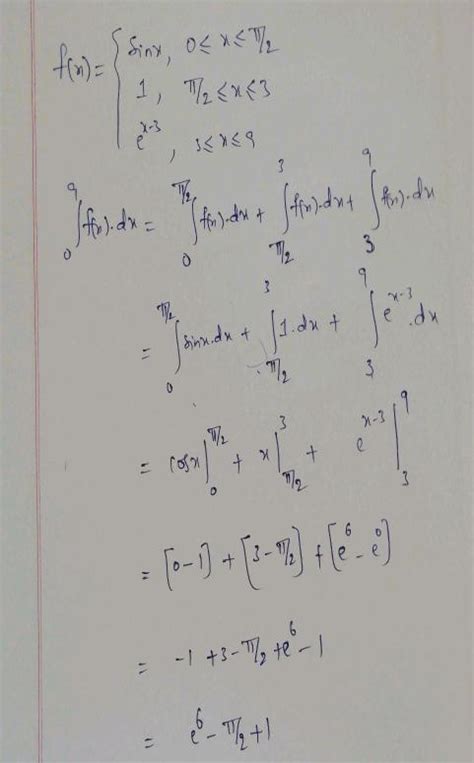 f(x) = { sinx, 0 ≤ x ≤ π/2
1, π/2 ≤ x ≤ 3
e^{x-3}, 3 ≤ x ≤ 9
∫_0^9 f(x).dx = ∫_0^{π/2} f(x).dx + ∫_{π/2}^3 f(x).dx + ∫_3^9 f(x).dx
= ∫_0^{π/2} sinx.dx + ∫_{π/2}^3 1.dx + ∫_3^9 e^{x-3}.dx
= cosx|_0^{π/2} + x|_{π/2}^3 + e^{x-3}|_3^9
= [0-1] + [3-π/2] + [e^6 - e^0]
= -1 +3 - π/2 + e^6 - 1
= e^6 - π/2 + 1